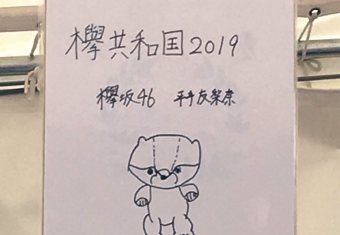 欅共和国2019
欅坂46 平手友梨奈